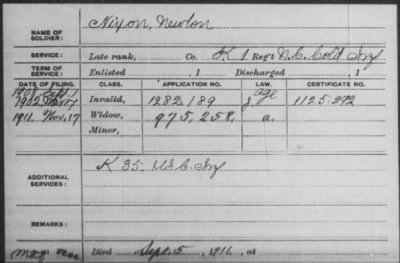 NAME OF SOLDIER: Nixon, Newton
SERVICE: Late rank, Co. K 1 Reg't N.C. Cold Inf
TERM OF SERVICE: Enlisted , 1 Discharged , 1
DATE OF FILING. CLASS. APPLICATION NO. LAW. CERTIFICATE NO.
1902 Invalid, 1282189 Age 1125.272
1911. Nov, 17 Widow, 975,258, a.
Minor,
ADDITIONAL SERVICES: K 35, U.S.C. Inf
REMARKS:
Died Sept. 5, 1911, at